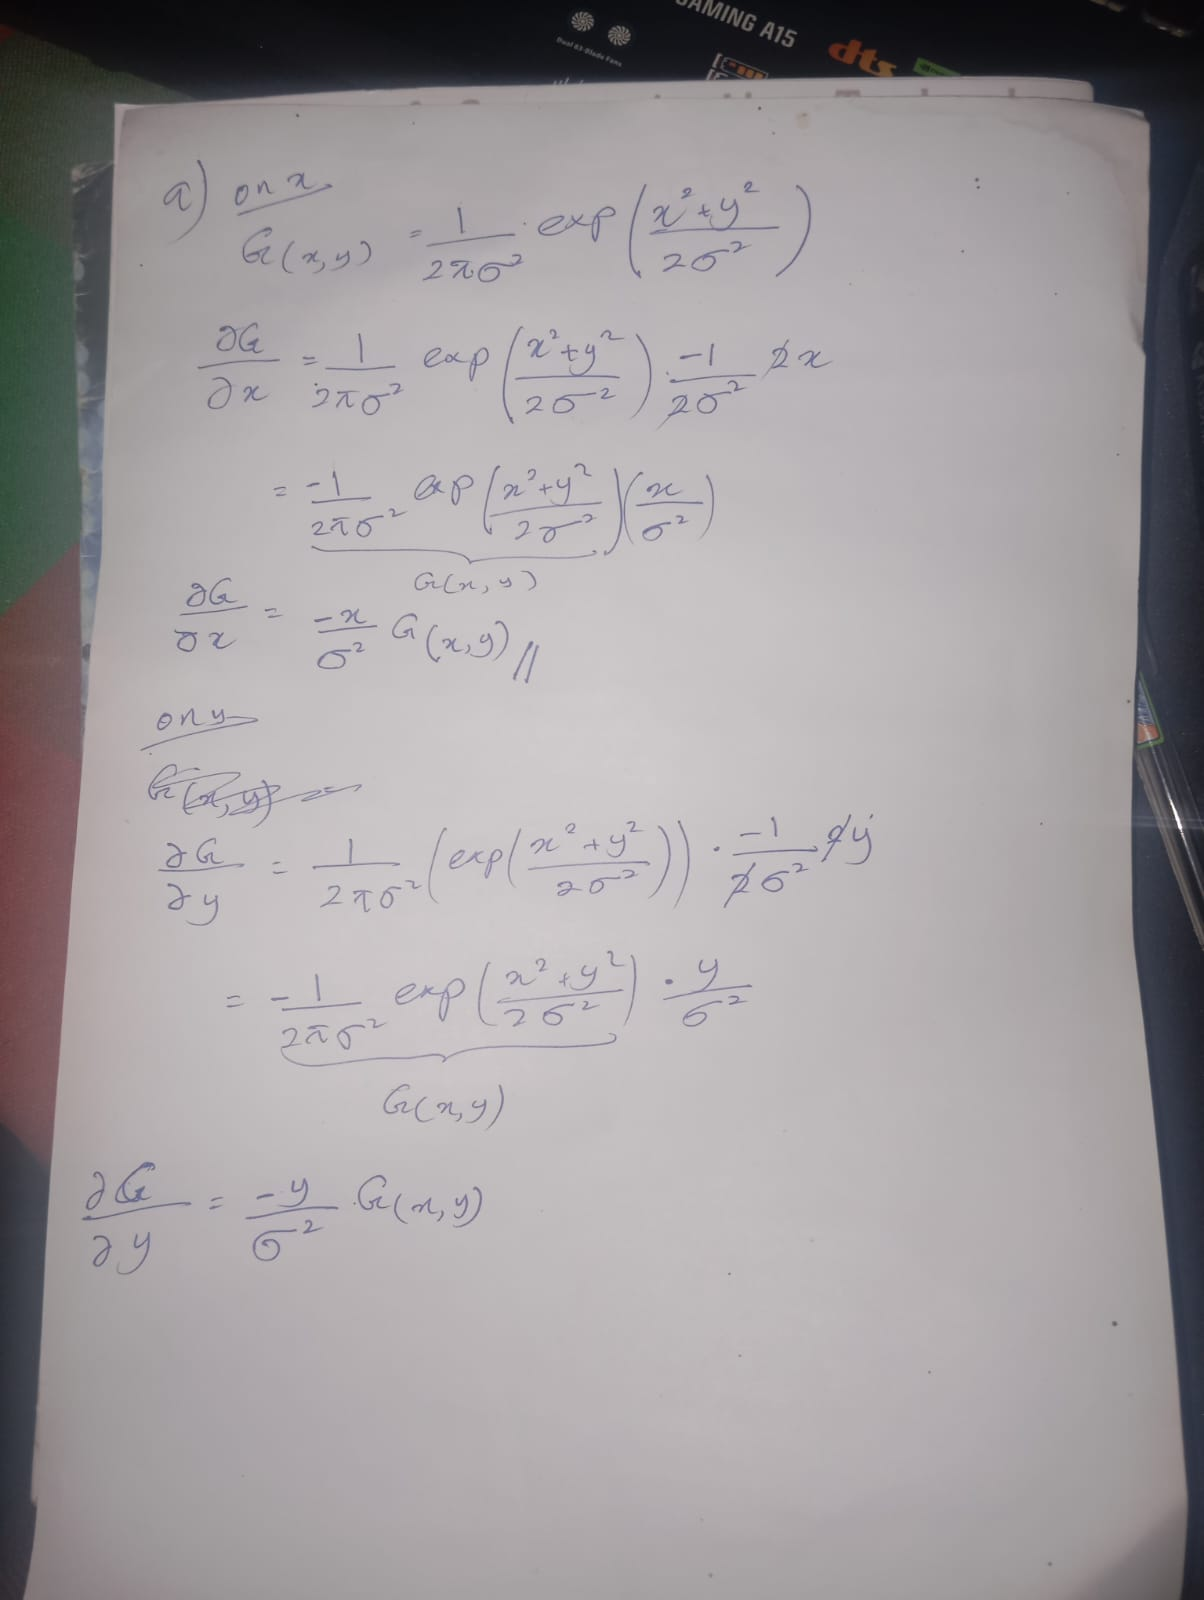 GAMING A15
dts
Dual 83-Blade Fans
a) on x
G(x,y) = 1/(2πσ²) · exp((x²+y²)/(2σ²))
∂G/∂x = 1/(2πσ²) exp((x²+y²)/(2σ²)) · -1/(2σ²) 2x
= -1/(2πσ²) exp((x²+y²)/(2σ²)) (x/σ²)
G(x,y)
∂G/∂x = -x/σ² G(x,y) //
on y
G(x,y) =
∂G/∂y = 1/(2πσ²) (exp((x²+y²)/(2σ²))) · -1/(2σ²) 2y
= -1/(2πσ²) exp((x²+y²)/(2σ²)) · y/σ²
G(x,y)
∂G/∂y = -y/σ² · G(x,y)